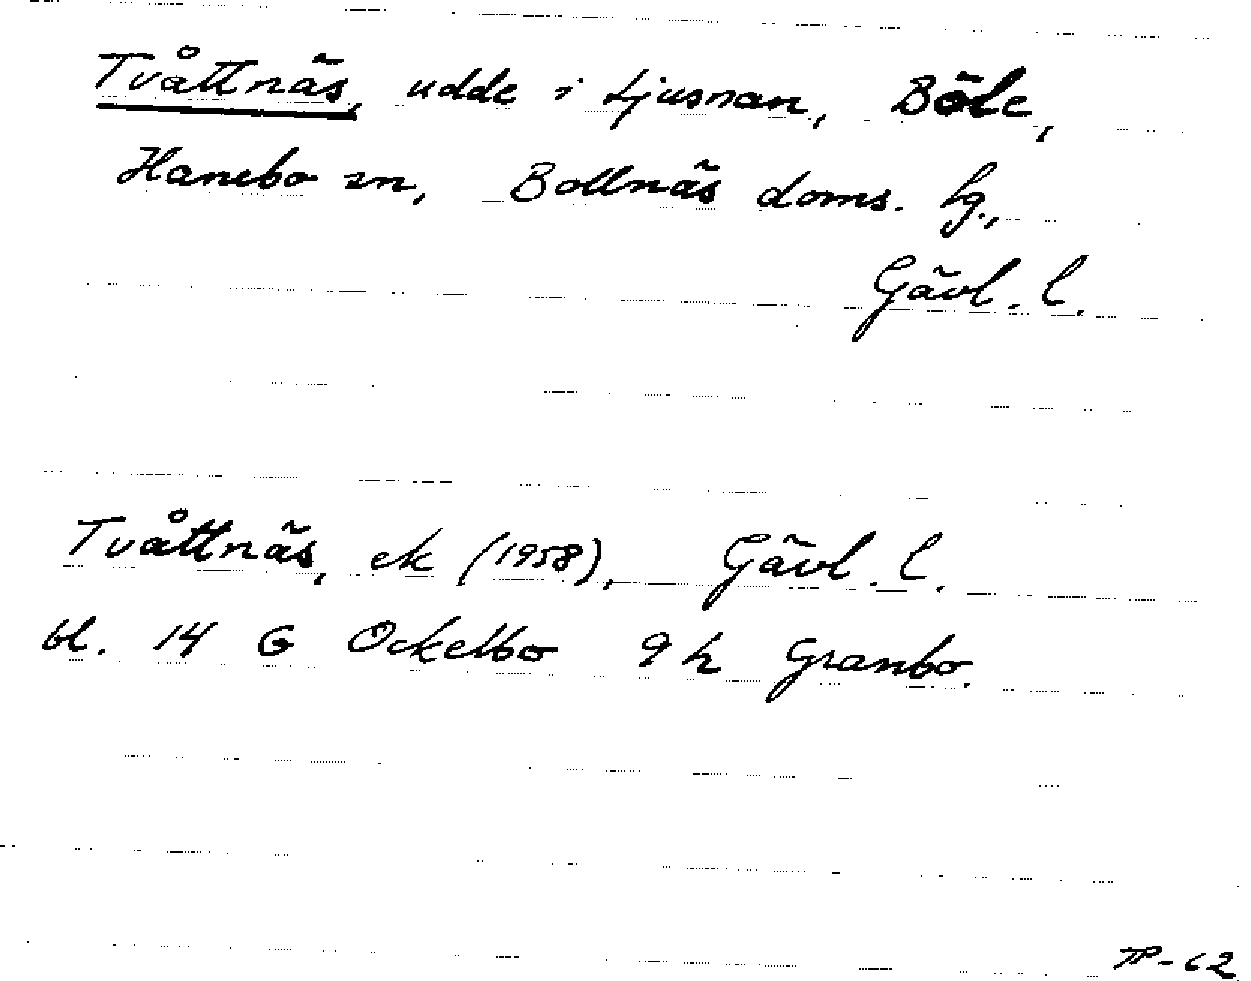 Tvåttnäs, udde i Ljusnan, Böle,
Hanebo sn, Bollnäs doms. lg.,
Gävl. l.
Tvåttnäs, ek (1958), Gävl. l.
bl. 14 G Ockelbo 9 h Granbo.
TP-62